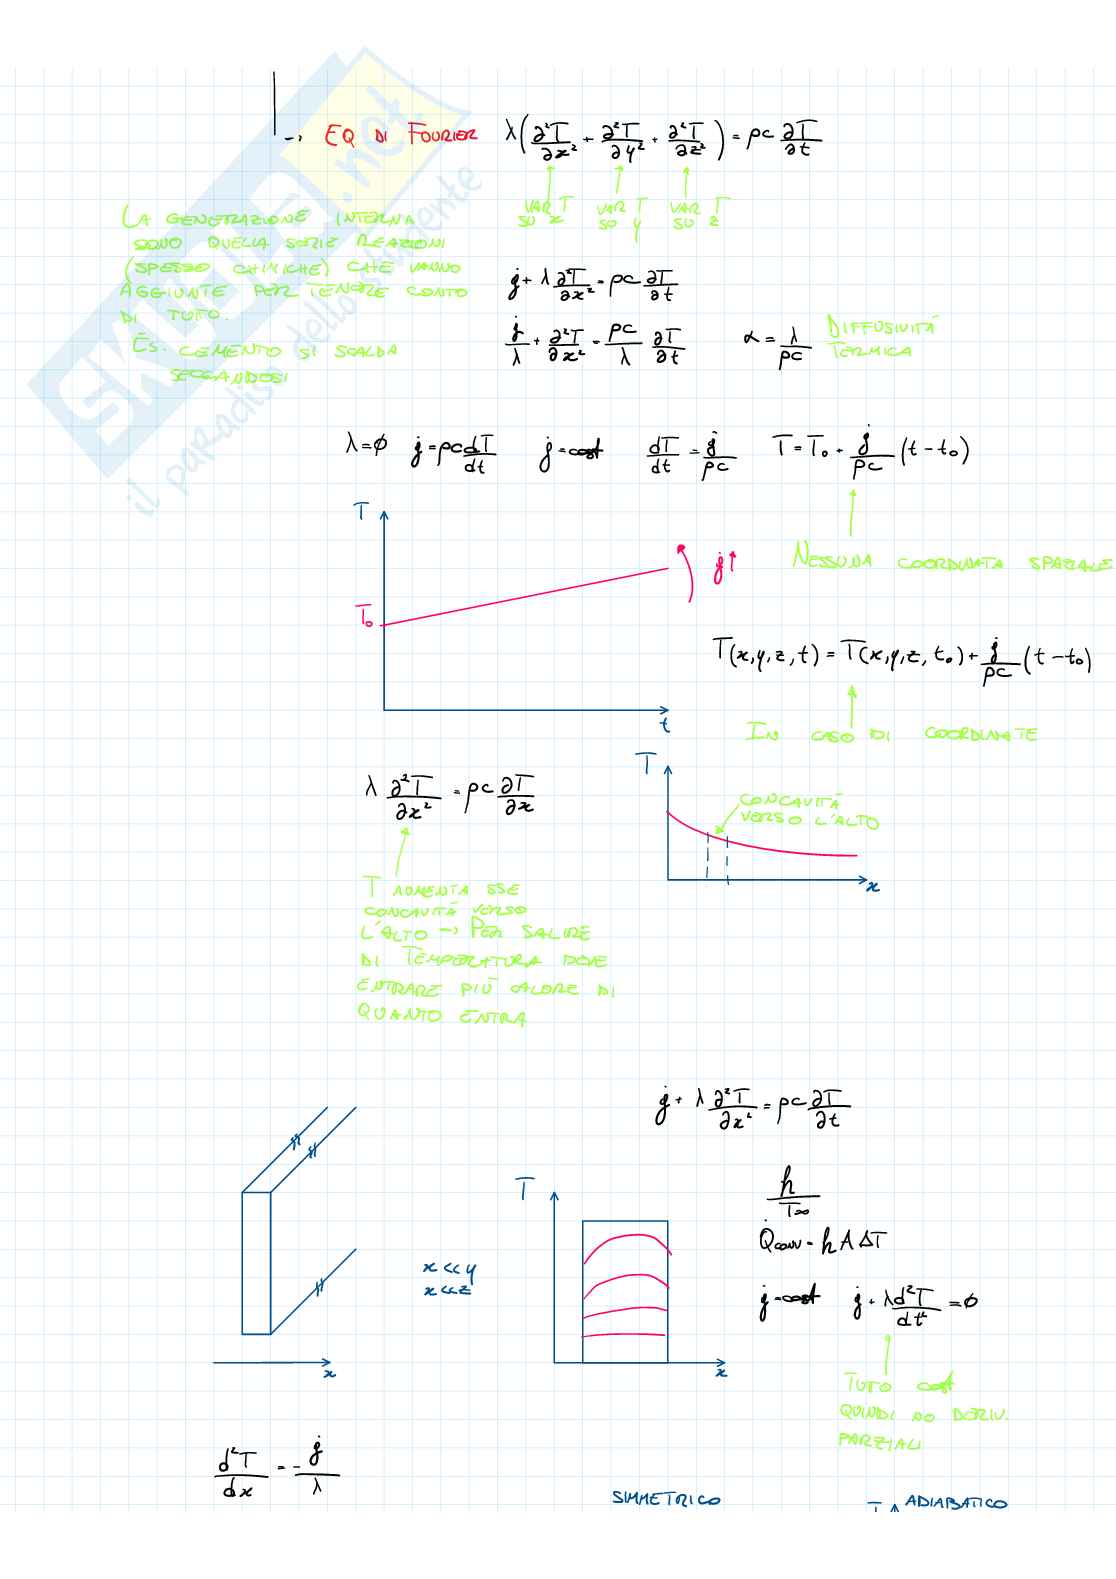 → EQ DI FOURIER λ(∂²T/∂x² + ∂²T/∂y² + ∂²T/∂z²) = ρc ∂T/∂t
VAR T SU x
VAR T SU y
VAR T SU z
LA GENERAZIONE INTERNA
SONO QUELLA SERIE REAZIONI
(SPESSO CHIMICHE) CHE VANNO
AGGIUNTE PER TENERE CONTO
DI TUTO.
ES. CEMENTO SI SCALDA
SECCANDOSI
ġ + λ ∂²T/∂x² = ρc ∂T/∂t
ġ/λ + ∂²T/∂x² = ρc/λ ∂T/∂t
α = λ/ρc DIFFUSIVITÀ
TERMICA
λ=φ ġ = ρc dT/dt ġ=cost dT/dt = ġ/ρc T = T₀ + ġ/ρc (t - t₀)
NESSUNA COORDINATA SPAZIALE
T
T₀
ġ↑
t
T(x,y,z,t) = T(x,y,z,t₀) + ġ/ρc (t - t₀)
IN CASO DI COORDINATE
λ ∂²T/∂x² = ρc ∂T/∂x
T
CONCAVITÀ
VERSO L'ALTO
x
T AUMENTA SSE
CONCAVITÀ VERSO
L'ALTO → PER SALIRE
DI TEMPERATURA DEVE
ENTRARE PIÙ CALORE DI
QUANTO ENTRA
ġ + λ ∂²T/∂x² = ρc ∂T/∂t
h
T∞
Q̇conv = h A ΔT
x << y
x << z
T
x
x
ġ=cost ġ + λ d²T/dt² = φ
TUTO cost
QUINDI NO DERIV.
PARZIALI
d²T/dx = - ġ/λ
SIMMETRICO
T ADIABATICO
SKUOLA.net
il paradiso dello studente